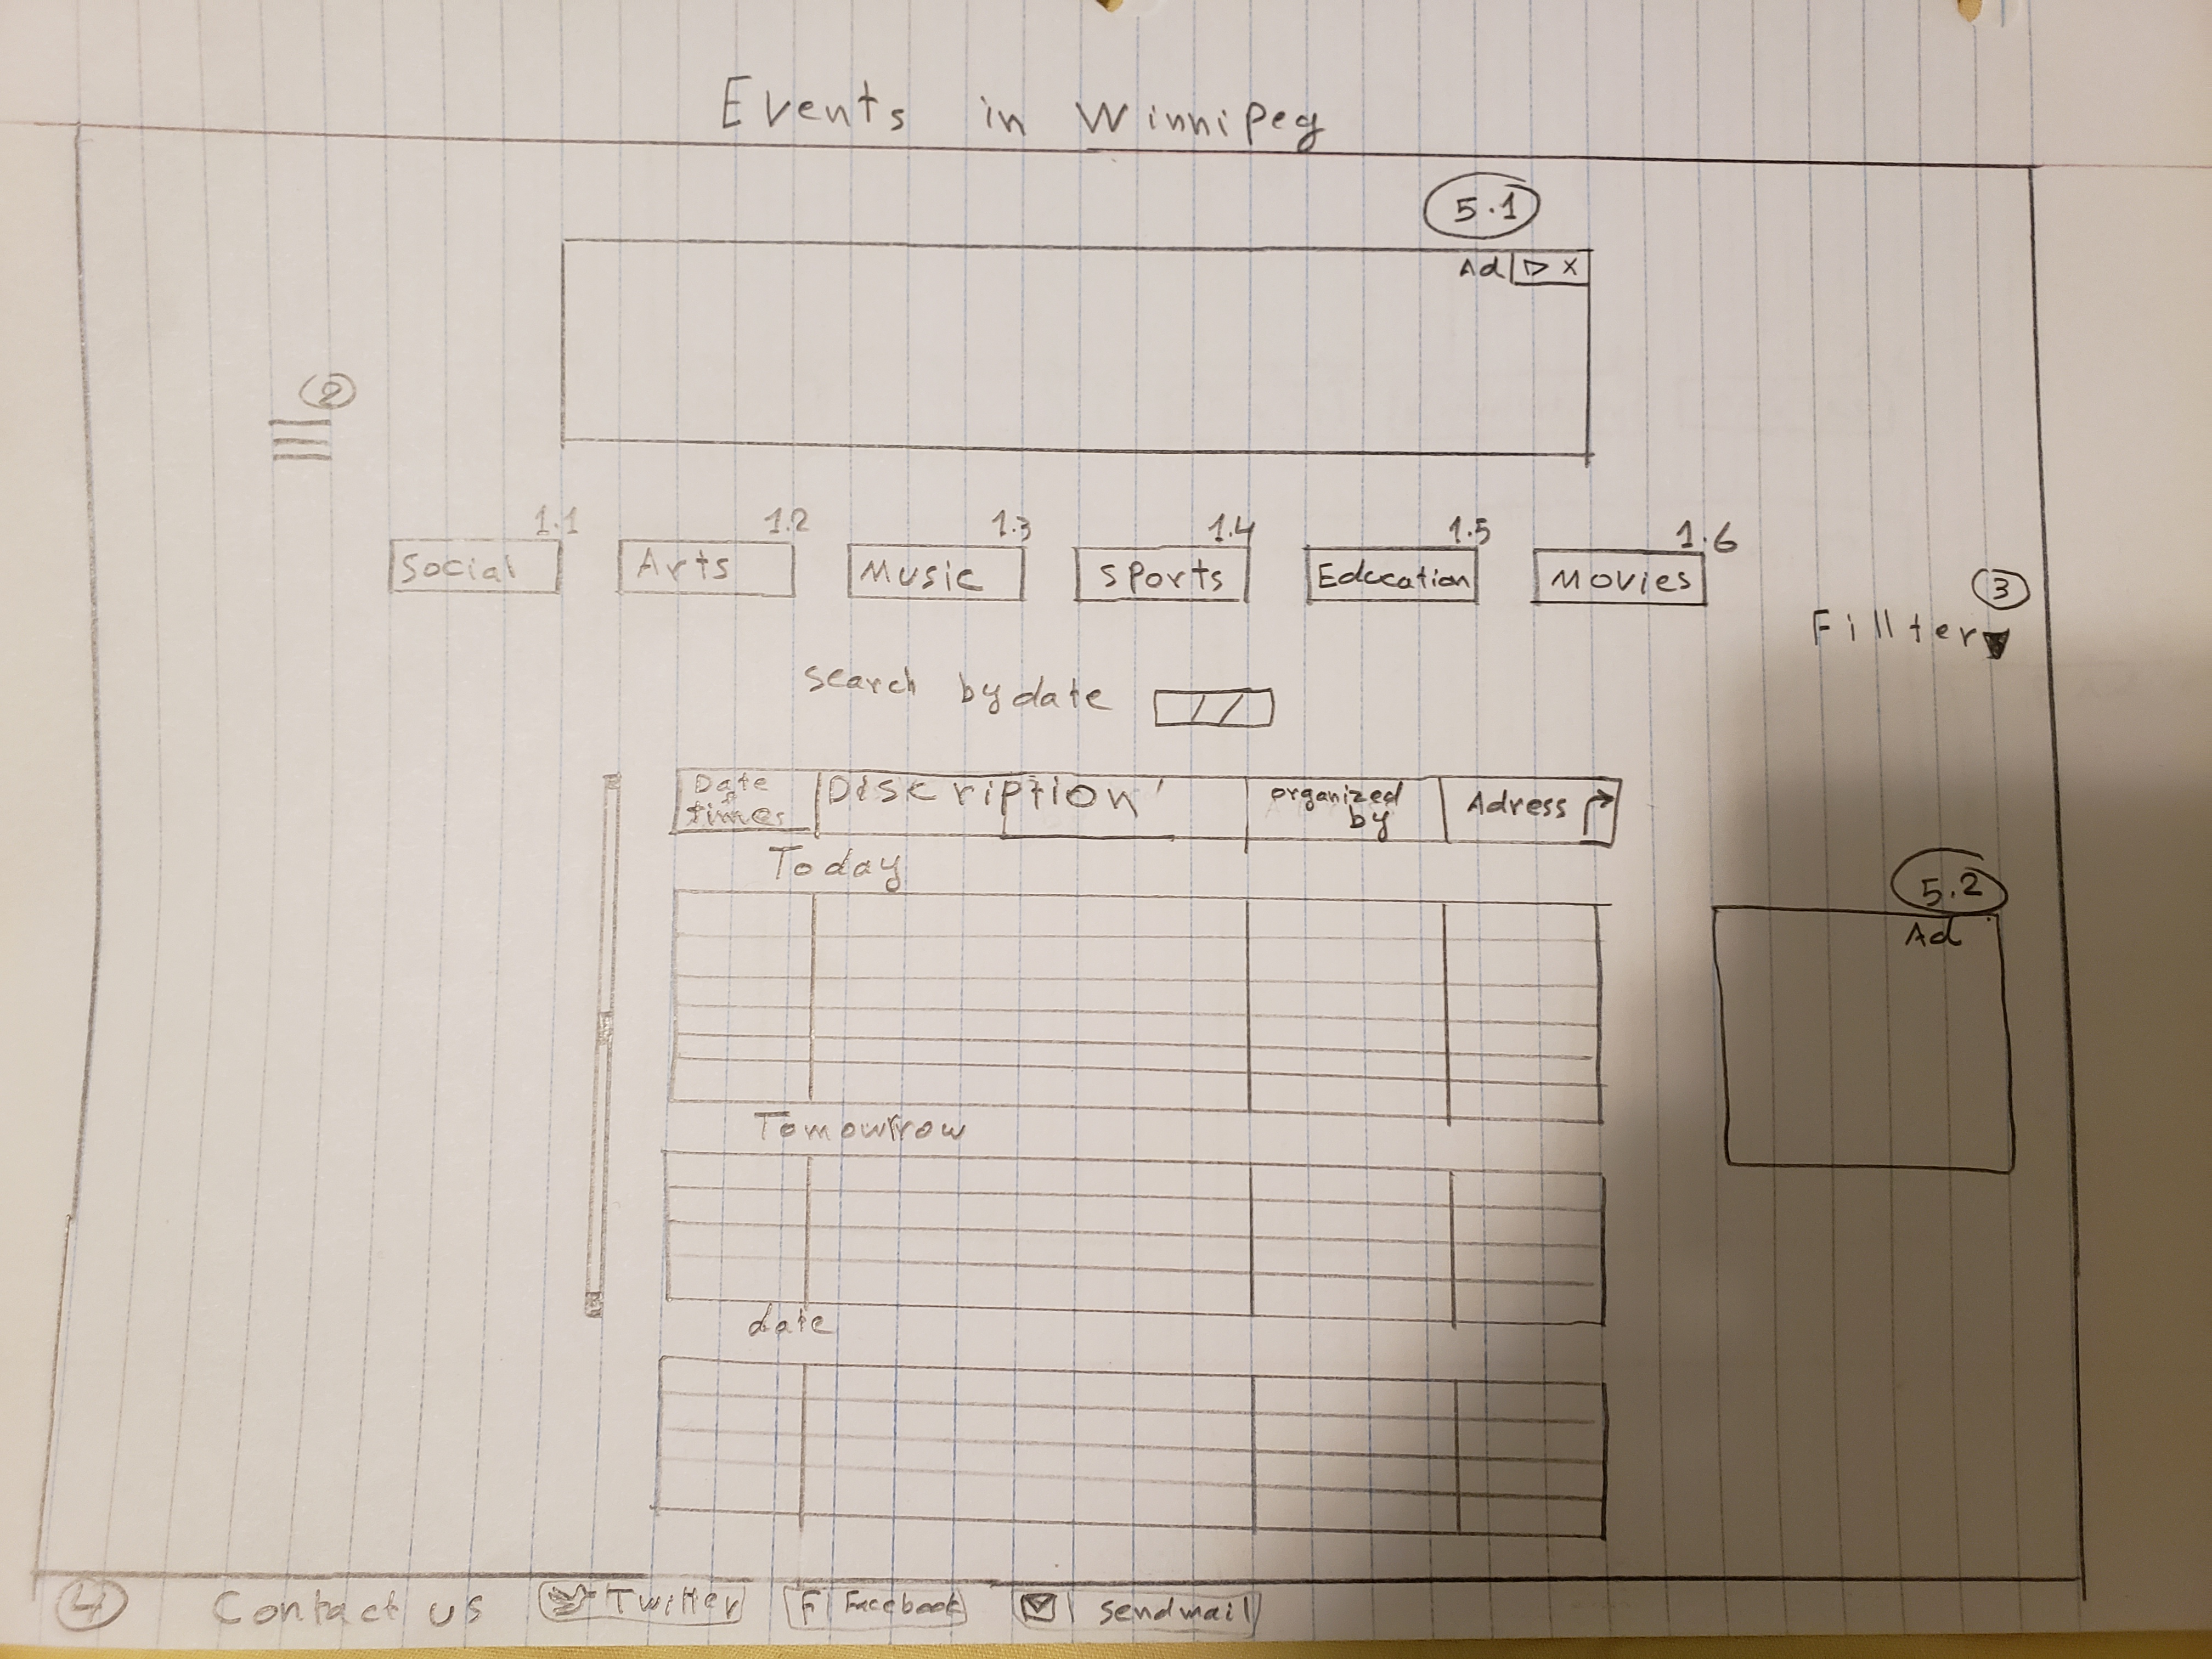 Events in Winnipeg
5.1
Ad ▷ X
2
1.1 1.2 1.3 1.4 1.5 1.6
Social Arts Music Sports Education Movies
3
Fillter▼
search by date //
Date & times Discription organized by Adress
Today
5.2
Ad
Tomowrrow
date
4 Contact us Twitter F Facebook sendmail